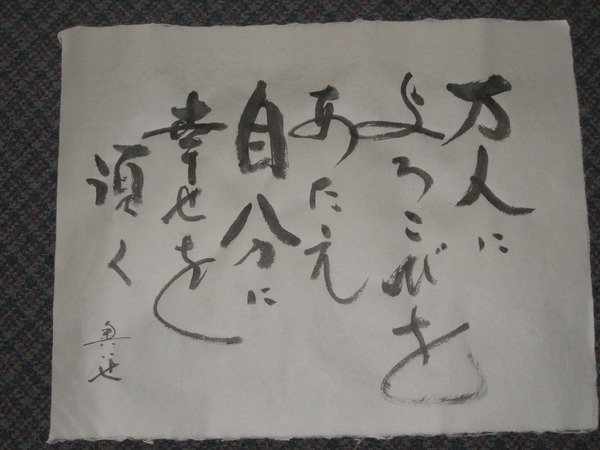 万人に
よろこびを
あたえ
自分に
幸せを
頂く